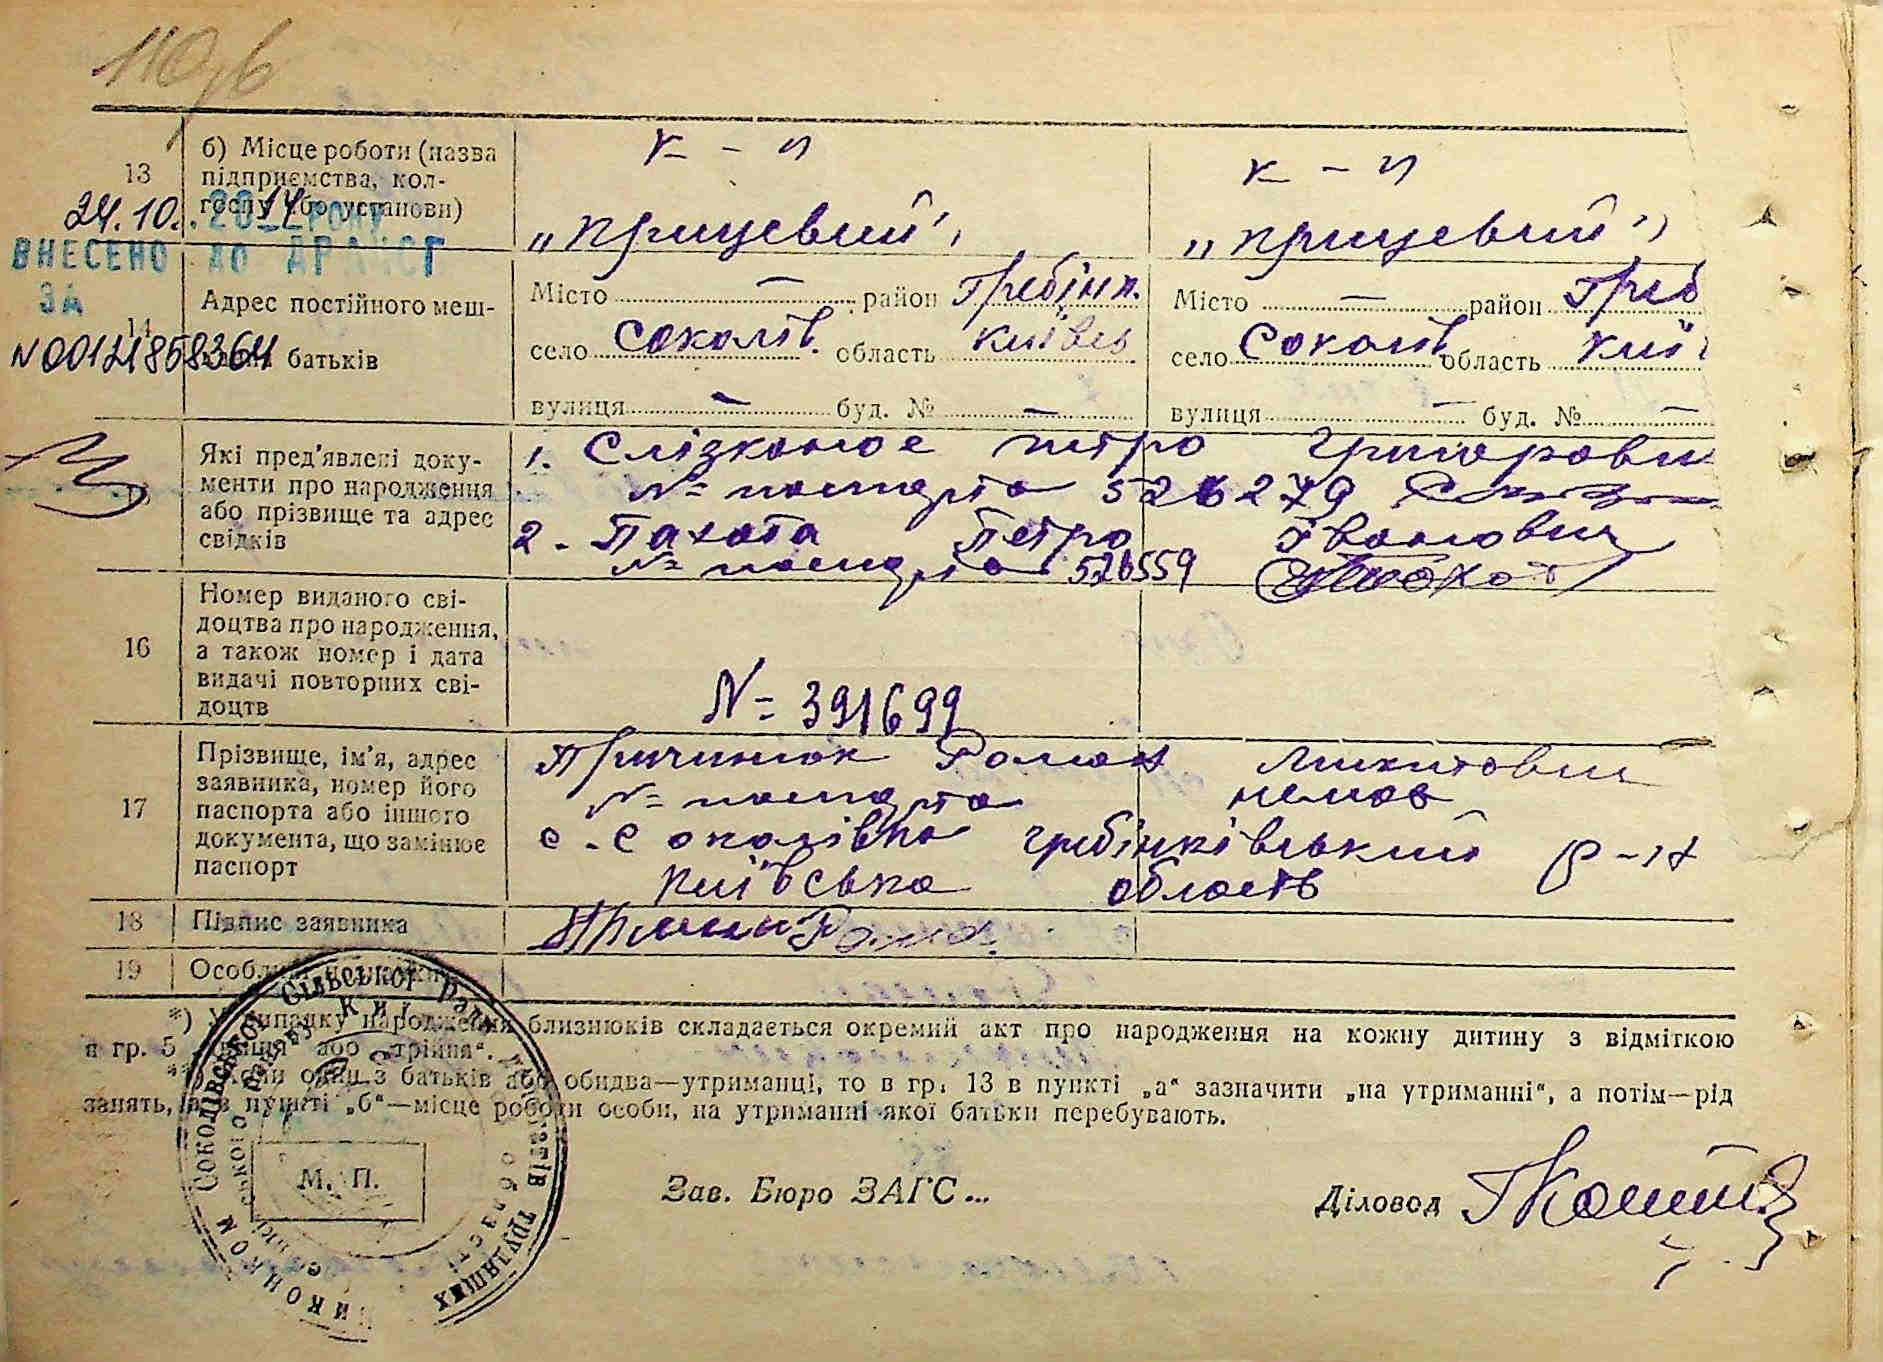 110
13
б) Місце роботи (назва
підприємства, кол-
госпу або установи)
к - п
к - п
„Прицевий"
„Прицевий"
24.10. 2014 РОКУ
ВНЕСЕНО ДО ДРАЦСГ
ЗА
N00121858364
14
Адрес постійного меш-
батьків
Місто — район Гребінк.
село Соколів. область Київсь
вулиця — буд. № —
Місто — район Греб
село Соколів область Киї
вулиця — буд. № —
Які пред'явлені доку-
менти про народження
або прізвище та адрес
свідків
1. Слізконос Петро Григорови
№ паспорта 526279
2. Пахота Петро Іванович
№ паспорта 526559
16
Номер виданого сві-
доцтва про народження,
а також номер і дата
видачі повторних сві-
доцтв
N= 391699
17
Прізвище, ім'я, адрес
заявника, номер його
паспорта або іншого
документа, що замінює
паспорт
Причинюк Роман Микитович
№ паспорта немає
с. Соколівка Гребінківський р-н
Київська область
18
Підпис заявника
19
*) У випадку народження близнюків складається окремий акт про народження на кожну дитину з відміткою
в гр. 5 або „трійня".
**) Коли один з батьків або обидва—утриманці, то в гр. 13 в пункті „а" зазначити „на утриманні", а потім—рід
занять, а в пункті „б"—місце роботи особи, на утриманні якої батьки перебувають.
ВИКОНКОМ СОКОЛІВСЬКОЇ СІЛЬСЬКОЇ РАДИ ДЕПУТАТІВ ТРУДЯЩИХ
М. П.
Зав. Бюро ЗАГС...
Діловод